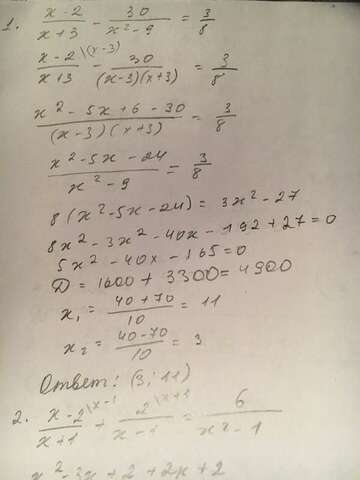 1. (x-2)/(x+3) - 30/(x²-9) = 3/8
(x-2)/(x+3) \(x-3) - 30/((x-3)(x+3)) = 3/8
(x²-5x+6-30)/((x-3)(x+3)) = 3/8
(x²-5x-24)/(x²-9) = 3/8
8(x²-5x-24) = 3x²-27
8x²-3x²-40x-192+27=0
5x²-40x-165=0
D=1600+3300=4900
x₁ = (40+70)/10 = 11
x₂ = (40-70)/10 = 3
Ответ: (3; 11)
2. (x-2)/(x+1) \x-1 + 2/(x-1) \x+1 = 6/(x²-1)
x²-3x+2+2x+2